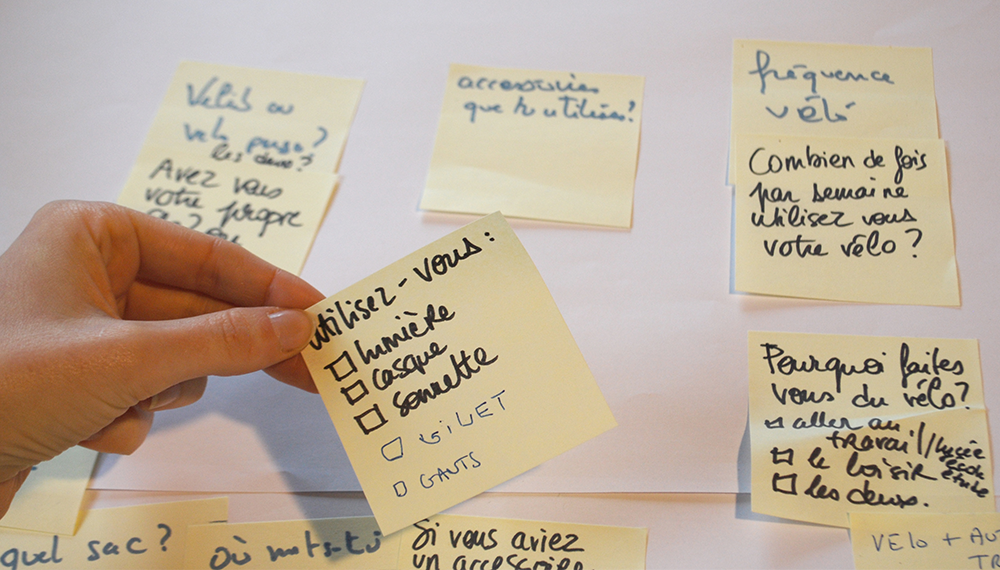 Velib ou
velo perso?
les deux?
Avez vous
votre propre
accessoires
que tu utilises?
fréquence
vélo
Combien de fois
par semaine
utilisez vous
votre vélo ?
utilisez-vous :
□ lumière
□ casque
□ sonnette
□ GILET
□ GANTS
Pourquoi faites
vous du vélo?
□ aller au
travail/lycée
école
étude
□ le loisir
□ les deux.
quel sac ?
où mets-tu
Si vous aviez
un accessoire
VELO + AU
TR